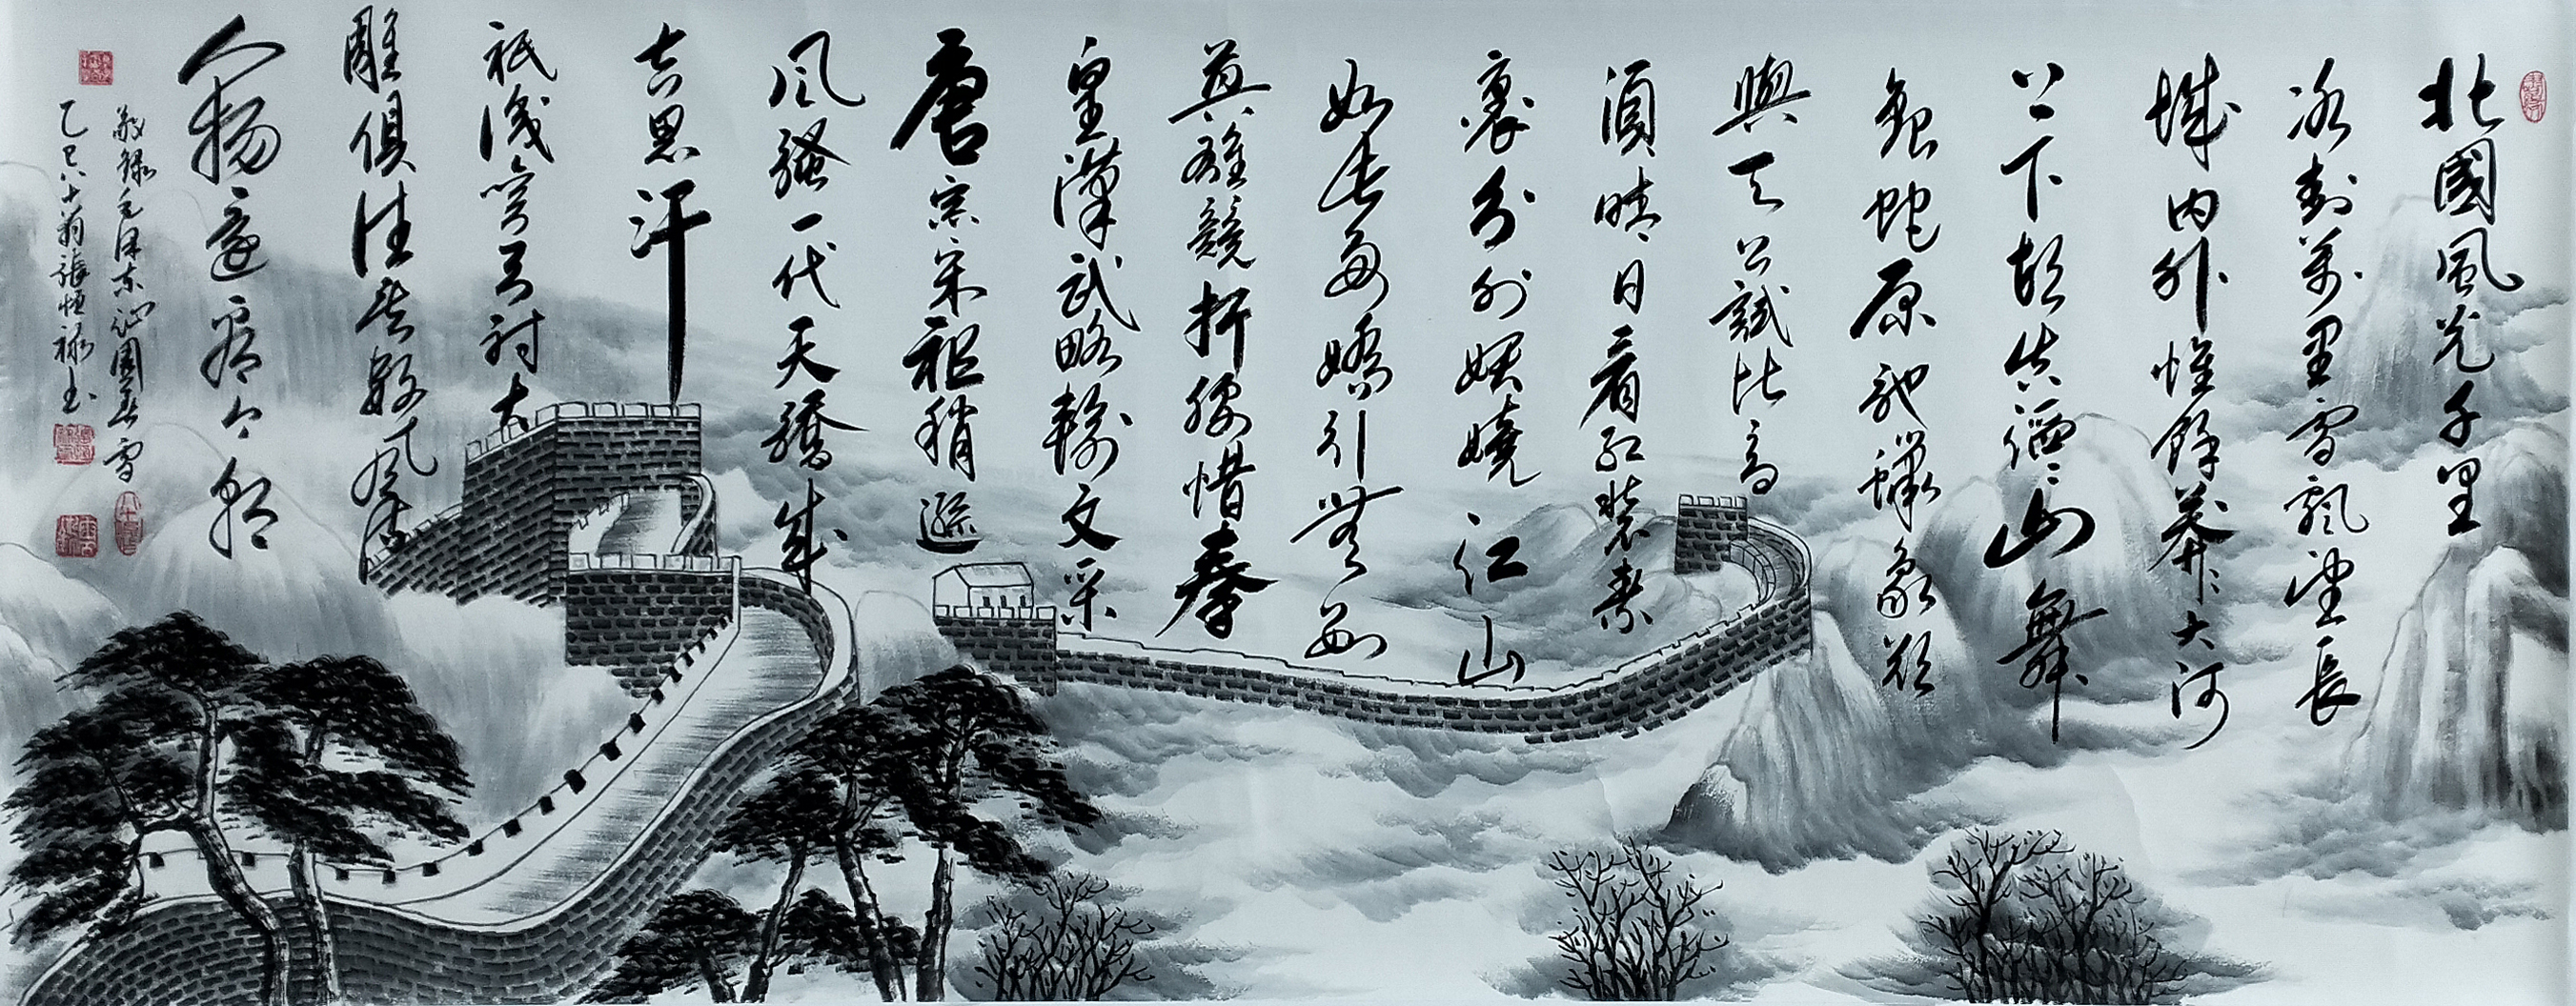 北國風光千里
冰封萬里雪飄望長
城内外惟餘莽〻大河
上下頓失滔〻山舞
銀蛇原馳蠟象欲
與天公試比高
須晴日看紅裝素
裹分外妖嬈江山
如此多嬌引無數
英雄競折腰惜秦
皇漢武略輸文采
唐宗宋祖稍遜
風騷一代天驕成
吉思汗
祇識彎弓射大
雕俱往矣數風流
人物還看今朝
敬錄毛澤東沁園春雪
乙巳八十翁張恒祿書